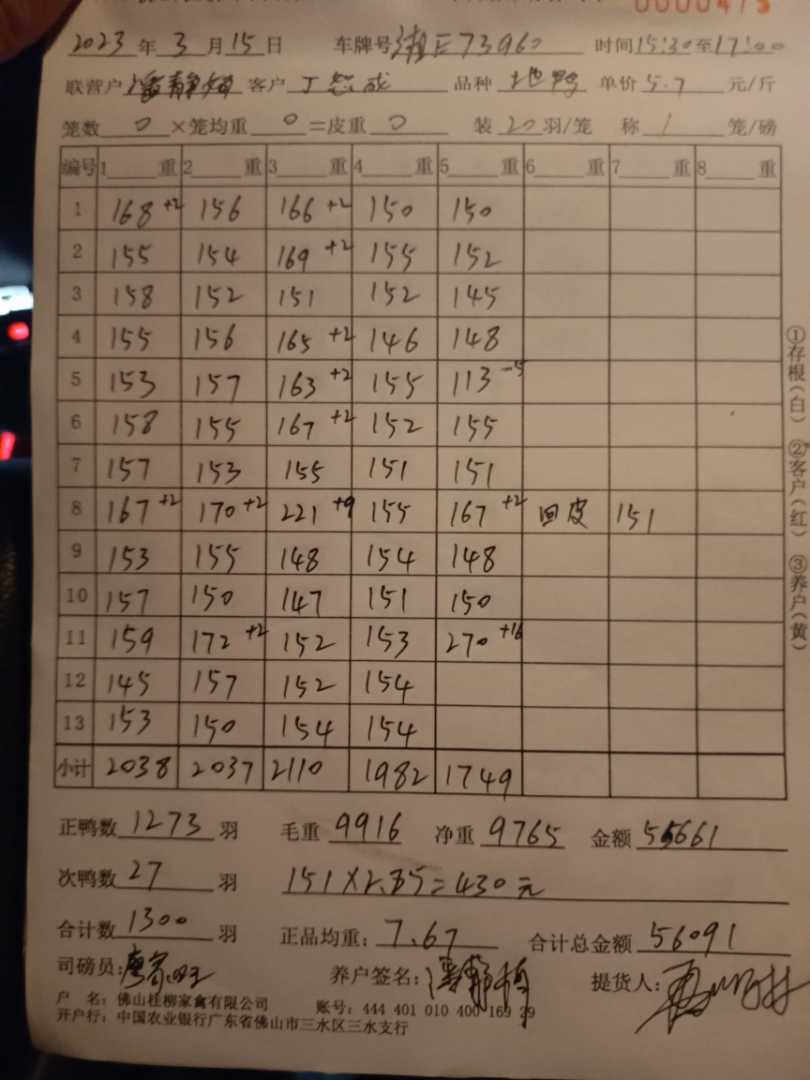 0000473
2023年3月15日 车牌号 湘E73960 时间15:30至17:00
联营户 潘静梅 客户 丁 成 品种 地鸭 单价 5.7 元/斤
笼数 0 ×笼均重 0 =皮重 0 装 20 羽/笼 称 1 笼/磅
编号 1 重 2 重 3 重 4 重 5 重 6 重 7 重 8 重
1 168+2 156 166+2 150 150
2 155 154 169+2 155 152
3 158 152 151 152 145
4 155 156 165+2 146 148
5 153 157 163+2 155 113-5
6 158 155 167+2 152 155
7 157 153 155 151 151
8 167+2 170+2 221+9 155 167+2 回皮 151
9 153 155 148 154 148
10 157 150 147 151 150
11 159 172+2 152 153 270+16
12 145 157 152 154
13 153 150 154 154
小计 2038 2037 2110 1982 1749
正鸭数 1273 羽 毛重 9916 净重 9765 金额 55661
次鸭数 27 羽 151×2.85=430元
合计数 1300 羽 正品均重: 7.67 合计总金额 56091
司磅员: 养户签名: 潘静梅 提货人:
户 名: 佛山桂柳家禽有限公司 账号: 444 401 010 400 169 29
开户行: 中国农业银行广东省佛山市三水区三水支行
①存根(白) ②客户(红) ③养户(黄)